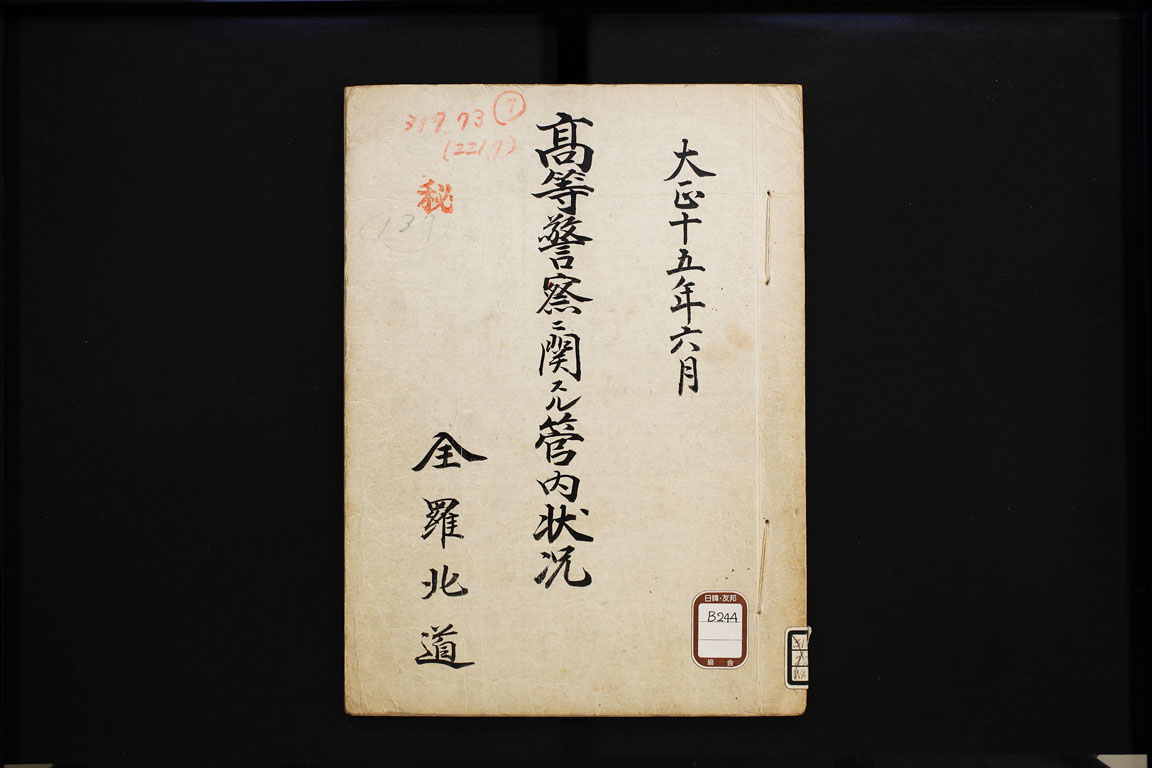 大正十五年六月
高等警察ニ関スル管内状況
全羅北道
319.73 ⑦
(2219)
秘
(137)
日韓・友邦
B244
協会